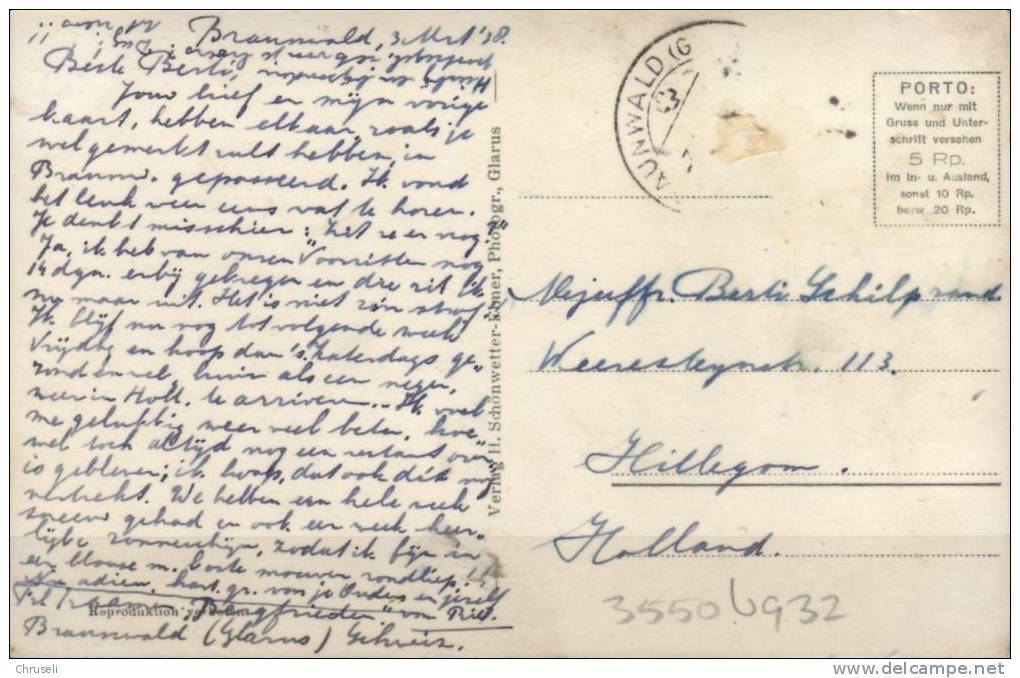 Braunwald, 3 Mrt '38.
Beste Berti,
Jouw brief en mijn vorige
kaart, hebben elkaar, zoals je
wel gemerkt zult hebben, in
Braunw. gepasseerd. Ik vond
het leuk weer eens wat te horen.
Je denkt misschien: "Zit ze er nog?"
Ja, ik heb van onzen "Voorzitter nog
14 dgn. erbij gekregen en die zit ik
nu maar uit. Het is niet zo'n straf,
Ik blijf nu nog tot volgende week
Vrijdag en hoop dan 's Zaterdags ge-
zond en wel, bruin als een neger,
weer in Holl. te arriveren... Ik voel
me gelukkig weer veel beter, hoe-
wel toch altijd nog een restant over
is gebleven; ik hoop, dat ook dit nog
vertrekt. We hebben een hele week
sneeuw gehad en ook een week heer-
lijke zonneschijn, zodat ik fijn in
een blouse m. korte mouwen rondliep.
Nu adieu, hart. gr. van je Ouders en jezelf
"Bergfrieden" von
Braunwald (Glarus) Schweiz.
Reproduktion
Verlag H. Schönwetter-Elmer, Photogr., Glarus
AUNWALD (G
PORTO:
Wenn nur mit
Gruss und Unter-
schrift versehen
5 Rp.
im In- u. Ausland,
sonst 10 Rp.
bezw. 20 Rp.
Mejuffr. Berti Schilpzand
Weeresteynstr. 113.
Hillegom.
Holland.
3550 U932
Chruseli
http://www.delcampe.net